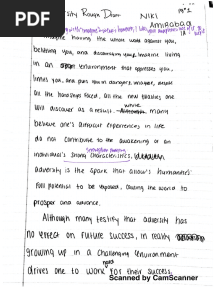 PDF
Rough Draft
NIKI
AMIRABAD
Imagine having the whole world against you,
belittling you, and discouraging you, Imagine living
in an environment that oppresses you,
limits you, and puts you in danger. Imagine,
all the hardships faced, all the new qualities one
will discover as a result. while many
believe one's difficult experiences in life
do not contribute to the awakening of an
individual's strong characteristics,
adversity is the spark that allows humanities'
full potential to be exposed, causing the world to
prosper and advance.
Although many testify that adversity has
no effect on future success, in reality
growing up in a challenging environment
drives one to work for their success.
Scanned by CamScanner